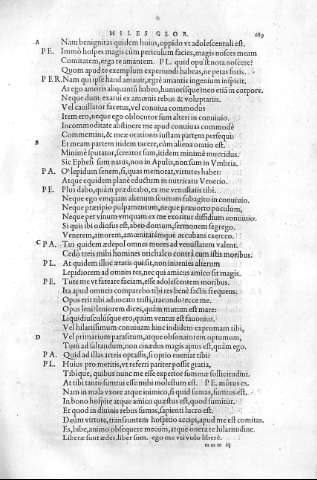 MILES GLOR. 689
A Nam benignitas quidem huius, oppido ut adolescentuli est.
PE. Immò hospes magis cùm periculum facies, magis nosces meam
Comitatem, erga te amantem. PL. quid opust nota noscere?
Quom apud te exemplum experiundi habeas, ne petas foris.
PER. Nam qui ipse haud amauit, ægrè amantis ingenium inspicit,
At ego amoris aliquantũ habeo, humorisq́ue meo etiã in corpore.
Neque dum exarui ex amœnis rebus & voluptariis.
Vel cauillator facetus, vel conuiua commodus
Item ero, neque ego oblocutor sum alteri in conuiuio.
Incommoditate abstinere me apud conuiuas commodè
Commemini, & meæ orationis iustam partem persequi
B Et meam partem itidem tacere, cùm aliena oratio est.
Minimè sputator, screator sum, itidem minimè mucidus.
Sic Ephesi sum natus, non in Apulis, non sum in Vmbria.
PA. O lepidum senem, si, quas memorat, virtutes habet:
Atque equidem planè eductum in nutricatu Venerio.
PE. Plus dabo, quàm prædicabo, ex me venustatis tibi.
Neque ego vmquam alienum scortum subagito in conuiuio,
Neque præripio pulpamentum, neque præuorto poculum,
Neque per vinum vmquam ex me exoritur discidium conuiuio.
Si quis ibi odiosus est, abeo domum, sermonem segrego.
Venerem, amorem, amœnitatémque accubans exerceo.
C PA. Tui quidem ædepol omnes mores ad venustatem valent.
Cedò treis mihi homines orichalco contrà cum istis moribus.
PL. At quidem illuc ætatis qui sit, non inuenies alterum
Lepidiorem ad omnes res, nec qui amicus amico sit magis.
PE. Tute me vt fateare faciam, esse adolescentem moribus.
Ita apud omneis comparebo tibi res benè factis frequens.
Opus erit tibi aduocato tristi, iracundo? ecce me.
Opus leni? leniorem dices, quàm mutum est mare:
Liquidiusculúsque ero, quàm ventus est fauonius.
Vel hilarissimum conuiuam hinc indidem expromam tibi,
D Vel primarium parasitum, atque obsonatorem optumum,
Tum ad saltandum, non cinædus magis aptus est, quàm ego.
PA. Quid ad illas arteis optassis, si optio eueniat tibi?
PL. Huius pro meritis, vt referri pariter possit gratia,
Tibíque, quibus nunc me esse experior summæ sollicitudini.
At tibi tanto sumtui esse mihi molestum est. PE. morus es.
Nam in mala vxore atque inimico, si quid sumas, sumtus est.
In bono hospite atque amico quæstus est, quod sumitur.
Et quod in diuinis rebus sumas, sapienti lucro est.
Deûm virtute, transeuntem hospitio accipi, apud me est comitas.
Es, bibe, animo obsequere mecum, atque onera te hilaritudine.
Liberæ sunt ædes, liber sum. ego me vivolo liberè.
m m m iij